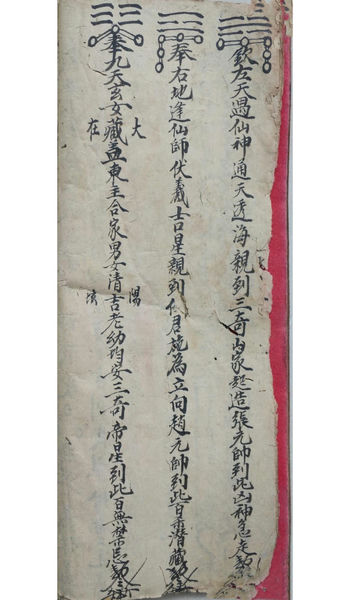 欽左天遇仙神通天透海親到三奇內家起造張元帥到此凶神急走
奉右地逢仙師伏羲吉星親到任君施為立向趙元帥到此百無潛藏
大 陽
奉九天玄女藏蓋東主合家男女清吉老幼均安三奇帝星到此百無禁忌
在